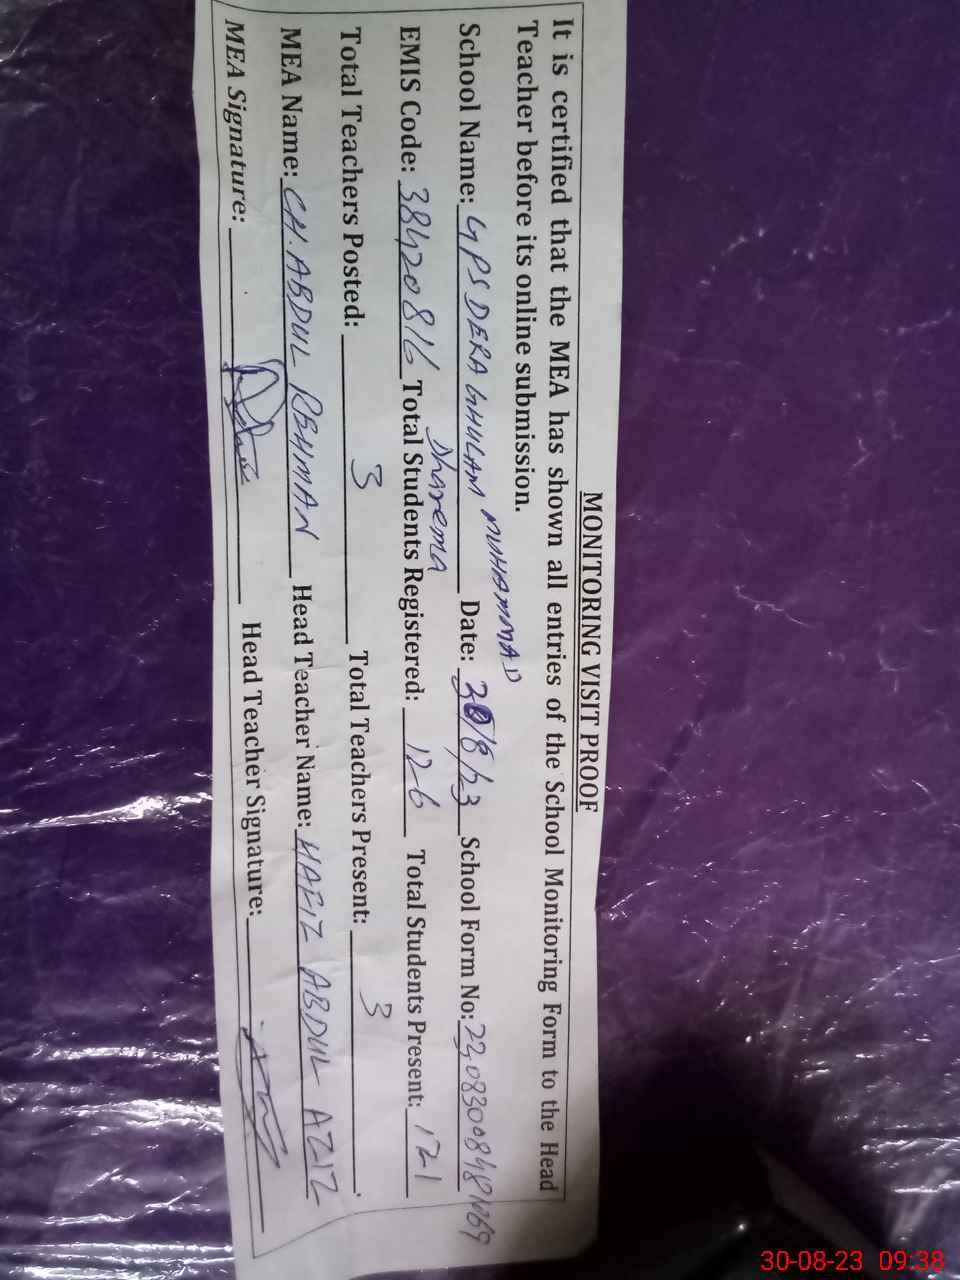 MONITORING VISIT PROOF
It is certified that the MEA has shown all entries of the School Monitoring Form to the Head
Teacher before its online submission.
School Name: GPS DERA GHULAM MUHAMMAD Date: 30/8/23 School Form No:
Dharema
EMIS Code: 38420816 Total Students Registered: 126 Total Students Present: 121
Total Teachers Posted: 3 Total Teachers Present: 3
MEA Name: CH. ABDUL REHMAN Head Teacher Name: HAFIZ ABDUL AZIZ
MEA Signature: Head Teacher Signature:
30-08-23 09:38